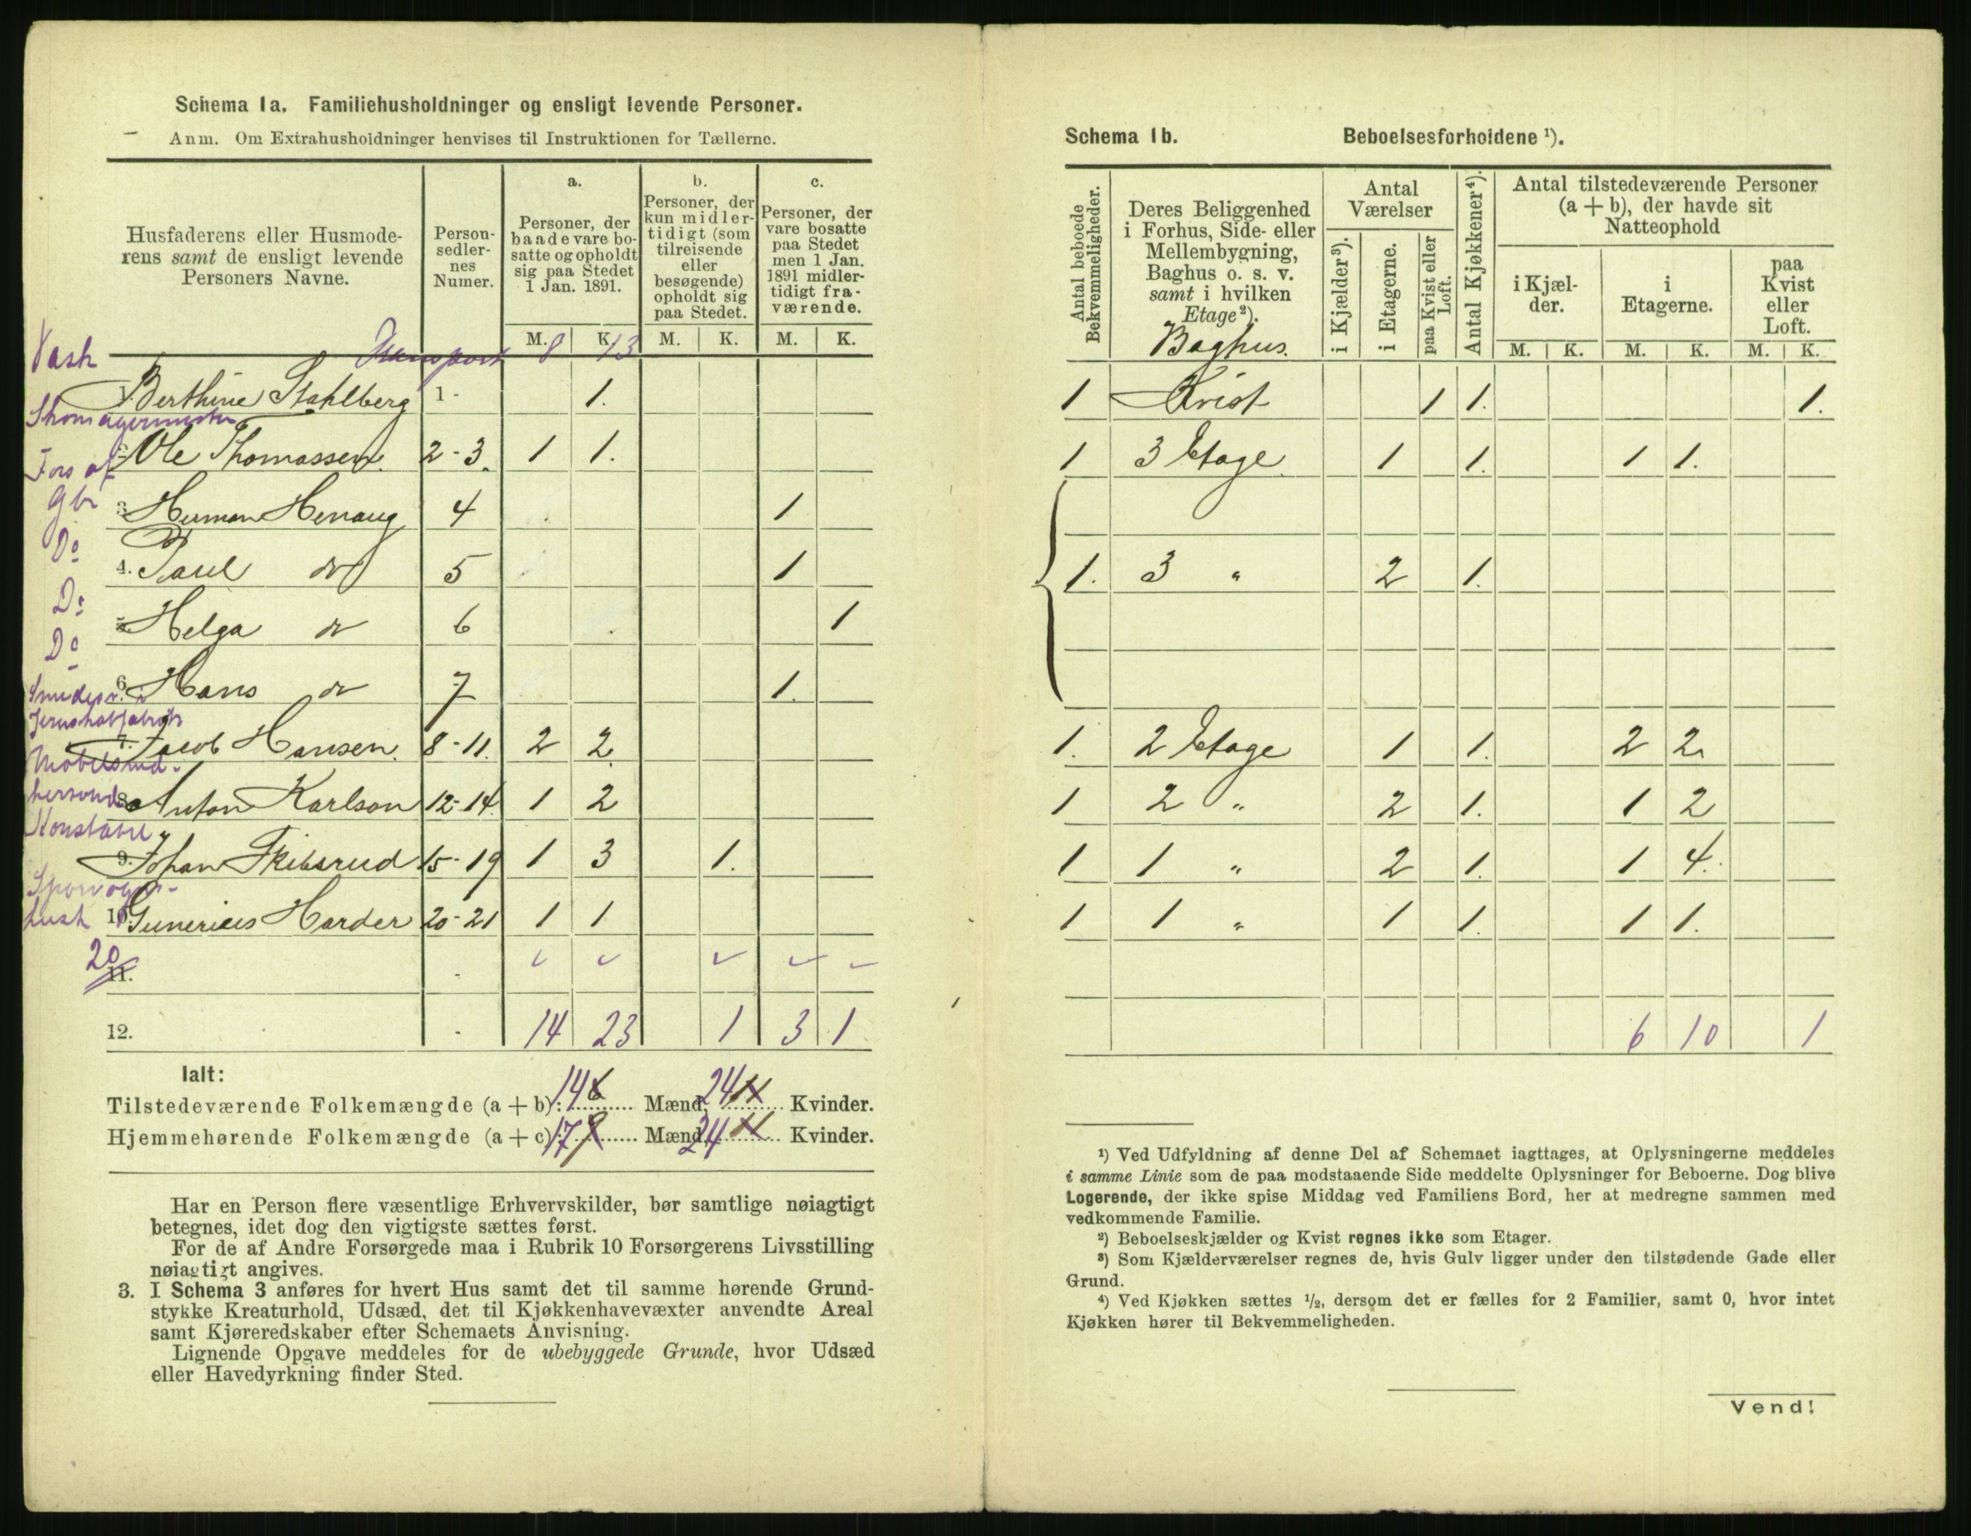 Schema 1a. Familiehusholdninger og ensligt levende Personer.
Anm. Om Extrahusholdninger henvises til Instruktionen for Tællerne.
Husfaderens eller Husmoderens samt de ensligt levende Personers Navne.
Person-sedler-nes Numer.
a. Personer, der baade vare bosatte og opholdt sig paa Stedet 1 Jan. 1891.
b. Personer, der kun midlertidigt (som tilreisende eller besøgende) opholdt sig paa Stedet.
c. Personer, der vare bosatte paa Stedet men 1 Jan. 1891 midlertidigt fraværende.
M. K. M. K. M. K.
Transport 8 13
Vask
1. Berthine Stahlberg 1 - 1.
Skomagermester
2. Ole Thomassen. 2-3. 1 1.
Fors af Gbr
3. Herman Henaug 4 1
Do
4. Paul do 5 1
Do
5. Helga do 6 1
Do
6. Hans do 7 1.
7. Jacob Hansen. 8-11. 2 2.
8. Anton Karlson 12-14. 1 2
Konstabel
9. Johan Fribsrud 15-19 1 3 1.
Sporvogn-
kusk 10. Gunerius Harder 20-21 1 1
20
11.
12. 14 23 1 3 1
Ialt:
Tilstedeværende Folkemængde (a + b): 14 6 Mænd, 24 11 Kvinder.
Hjemmehørende Folkemængde (a + c): 17 9 Mænd, 24 11 Kvinder.
Har en Person flere væsentlige Erhvervskilder, bør samtlige nøiagtigt
betegnes, idet dog den vigtigste sættes først.
For de af Andre Forsørgede maa i Rubrik 10 Forsørgerens Livsstilling
nøiagtigt angives.
3. I Schema 3 anføres for hvert Hus samt det til samme hørende Grund-
stykke Kreaturhold, Udsæd, det til Kjøkkenhavevæxter anvendte Areal
samt Kjøreredskaber efter Schemaets Anvisning.
Lignende Opgave meddeles for de ubebyggede Grunde, hvor Udsæd
eller Havedyrkning finder Sted.
Schema 1b. Beboelsesforholdene ¹).
Antal beboede Bekvemmeligheder.
Deres Beliggenhed i Forhus, Side- eller Mellembygning, Baghus o. s. v. samt i hvilken Etage²).
Baghus.
Antal Værelser
i Kjælder³).
i Etagerne.
paa Kvist eller Loft.
Antal Kjøkkener⁴).
Antal tilstedeværende Personer (a + b), der havde sit Natteophold
i Kjælder.
i Etagerne.
paa Kvist eller Loft.
M. K. M. K. M. K.
1 Kvist 1 1. 1.
1 3 Etage 1 1. 1 1.
1. 3 " 2 1.
1. 2 Etage 1 1. 2 2
1 2 " 2 1. 1 2
1 1 " 2 1. 1 4.
1 1 " 1 1. 1 1.
6 10 1
¹) Ved Udfyldning af denne Del af Schemaet iagttages, at Oplysningerne meddeles
i samme Linie som de paa modstaaende Side meddelte Oplysninger for Beboerne. Dog blive
Logerende, der ikke spise Middag ved Familiens Bord, her at medregne sammen med
vedkommende Familie.
²) Beboelseskjælder og Kvist regnes ikke som Etager.
³) Som Kjælderværelser regnes de, hvis Gulv ligger under den tilstødende Gade eller
Grund.
⁴) Ved Kjøkken sættes ½, dersom det er fælles for 2 Familier, samt 0, hvor intet
Kjøkken hører til Bekvemmeligheden.
Vend!